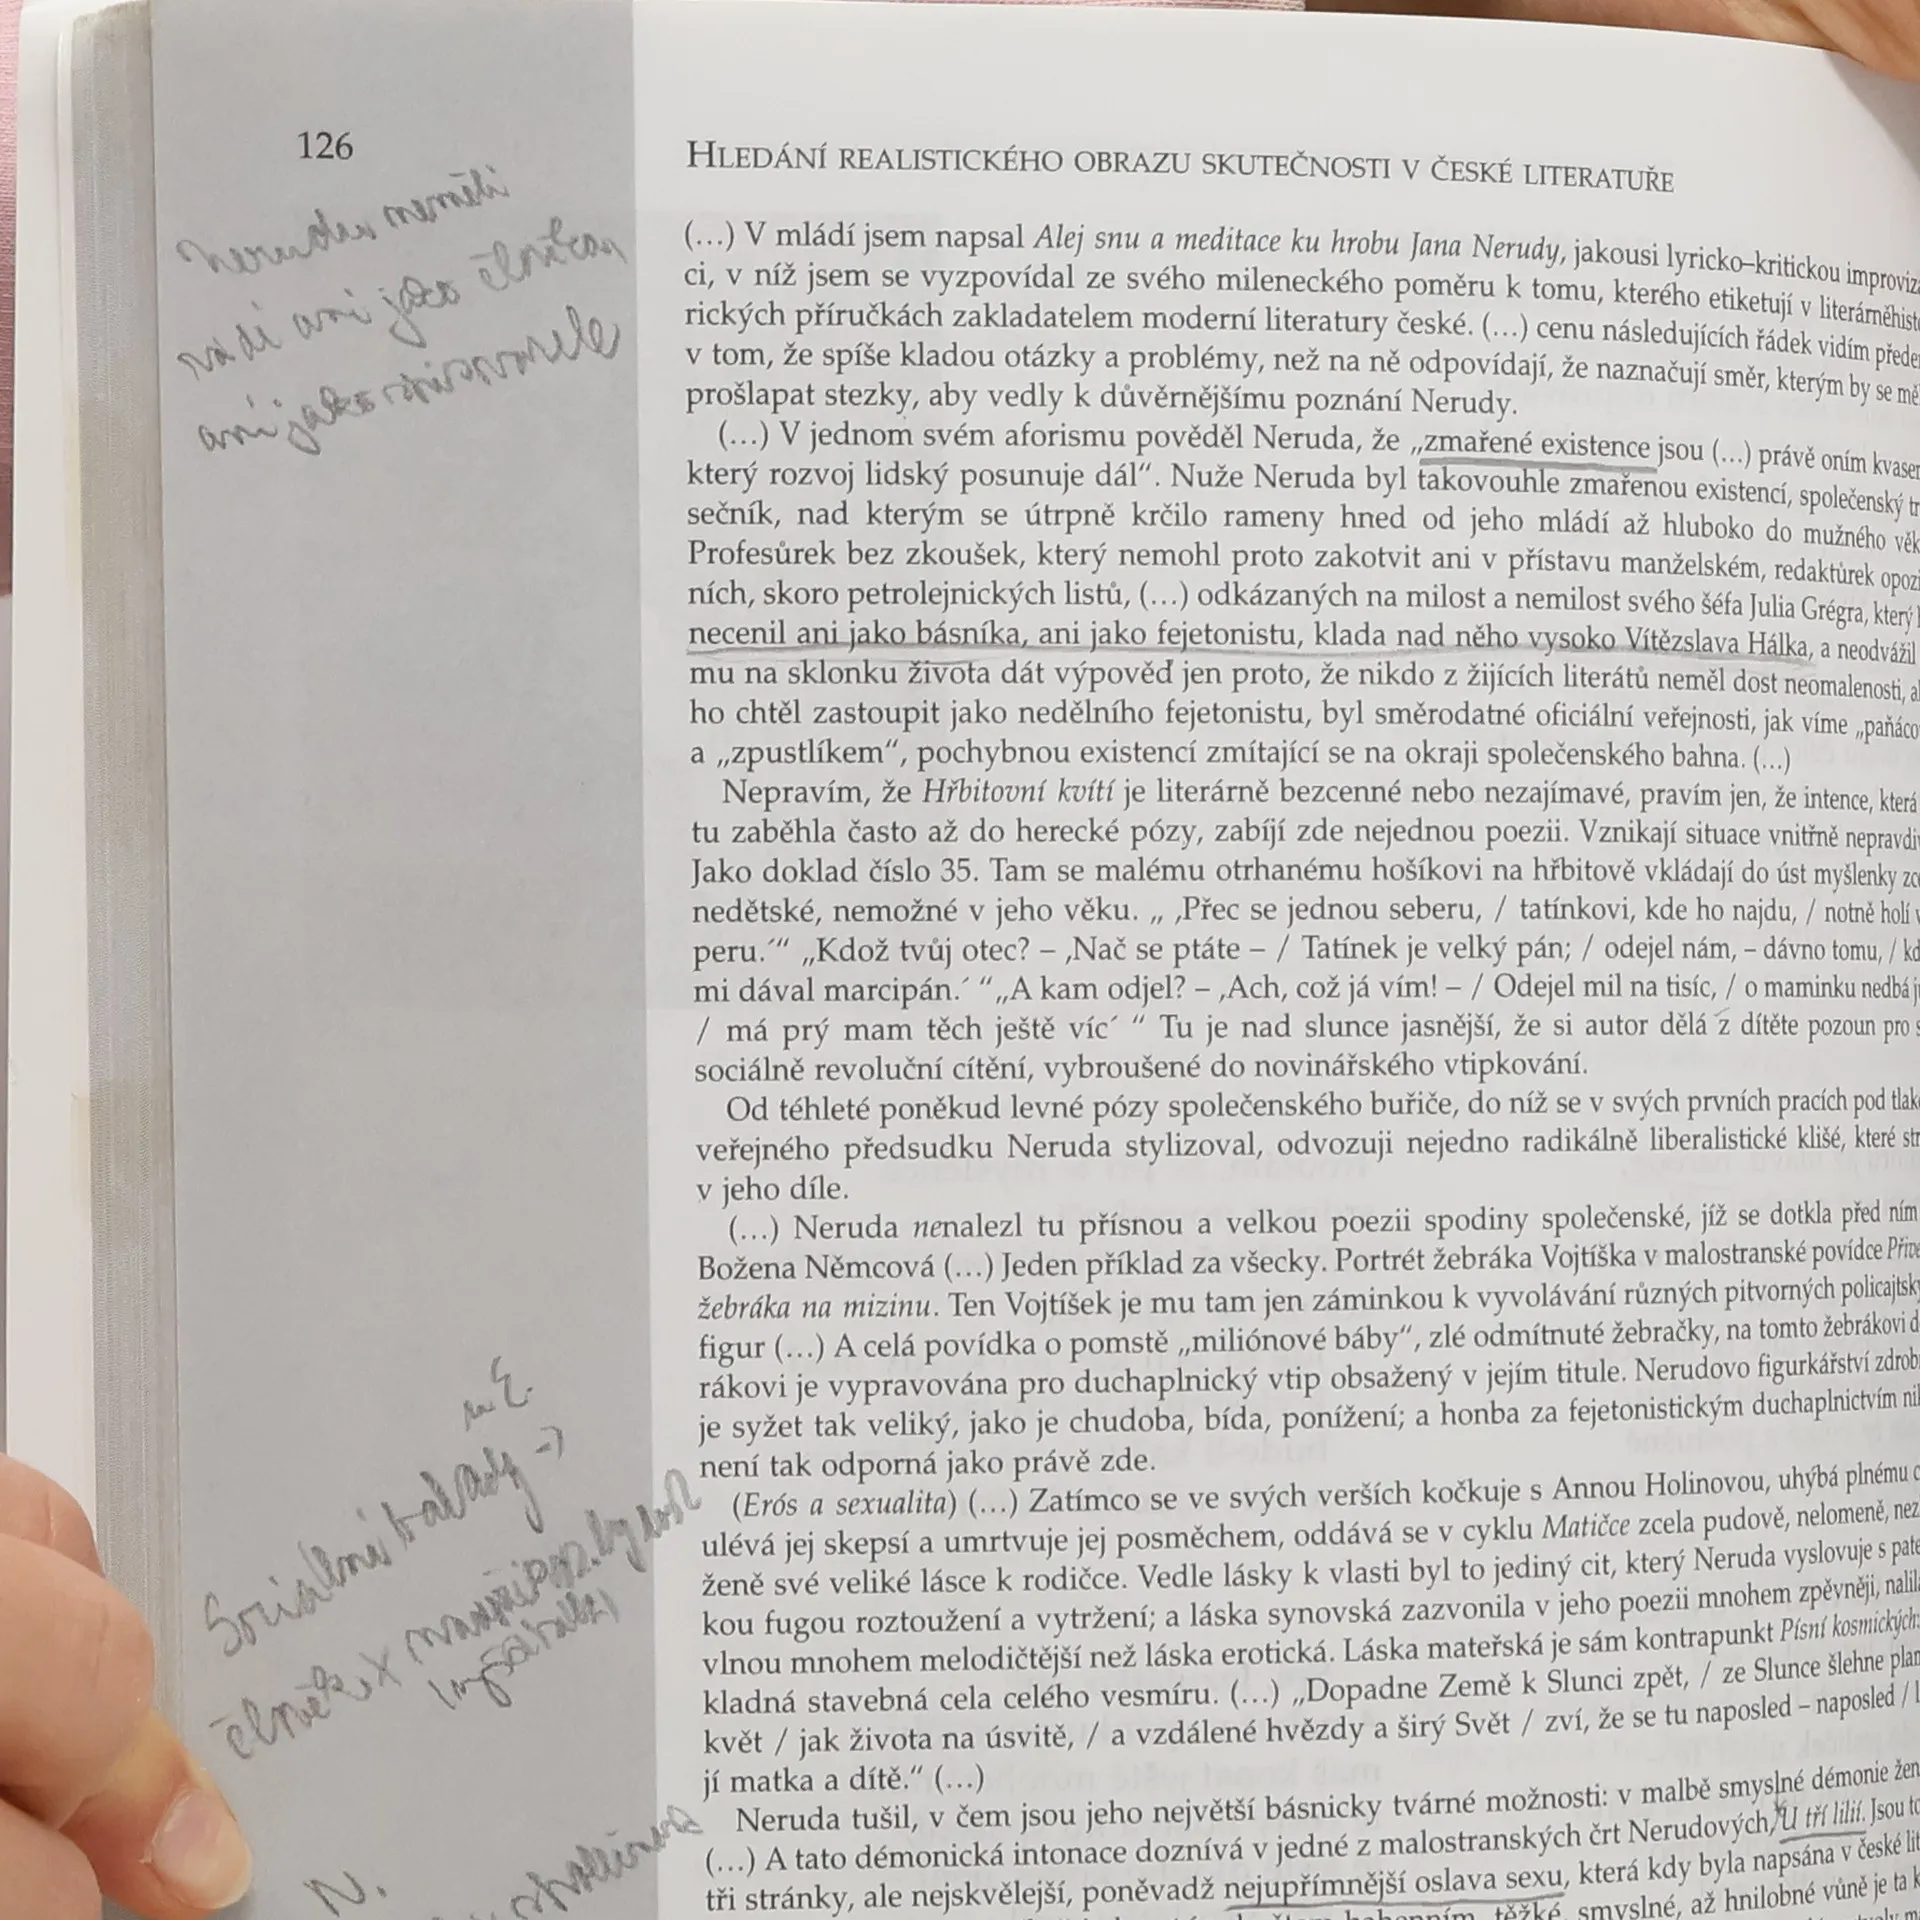 126
Nerudu neměli
rádi ani jako člověka
ani jako spisovatele
HLEDÁNÍ REALISTICKÉHO OBRAZU SKUTEČNOSTI V ČESKÉ LITERATUŘE
(…) V mládí jsem napsal Alej snu a meditace ku hrobu Jana Nerudy, jakousi lyricko–kritickou improviza
ci, v níž jsem se vyzpovídal ze svého mileneckého poměru k tomu, kterého etiketují v literárněhisto
rických příručkách zakladatelem moderní literatury české. (…) cenu následujících řádek vidím přede
v tom, že spíše kladou otázky a problémy, než na ně odpovídají, že naznačují směr, kterým by se mě
prošlapat stezky, aby vedly k důvěrnějšímu poznání Nerudy.
(…) V jednom svém aforismu pověděl Neruda, že „zmařené existence jsou (…) právě oním kvasem
který rozvoj lidský posunuje dál“. Nuže Neruda byl takovouhle zmařenou existencí, společenský tr
sečník, nad kterým se útrpně krčilo rameny hned od jeho mládí až hluboko do mužného věk
Profesůrek bez zkoušek, který nemohl proto zakotvit ani v přístavu manželském, redaktůrek opozi
ních, skoro petrolejnických listů, (…) odkázaných na milost a nemilost svého šéfa Julia Grégra, který
necenil ani jako básníka, ani jako fejetonistu, klada nad něho vysoko Vítězslava Hálka, a neodvážil
mu na sklonku života dát výpověď jen proto, že nikdo z žijících literátů neměl dost neomalenosti, a
ho chtěl zastoupit jako nedělního fejetonistu, byl směrodatné oficiální veřejnosti, jak víme „paňáco
a „zpustlíkem“, pochybnou existencí zmítající se na okraji společenského bahna. (…)
Nepravím, že Hřbitovní kvítí je literárně bezcenné nebo nezajímavé, pravím jen, že intence, která
tu zaběhla často až do herecké pózy, zabíjí zde nejednou poezii. Vznikají situace vnitřně nepravdi
Jako doklad číslo 35. Tam se malému otrhanému hošíkovi na hřbitově vkládají do úst myšlenky zce
nedětské, nemožné v jeho věku. „ ‚Přec se jednou seberu, / tatínkovi, kde ho najdu, / notně holí v
peru.´“ „Kdož tvůj otec? – ‚Nač se ptáte – / Tatínek je velký pán; / odejel nám, – dávno tomu, / kd
mi dával marcipán.´ “„A kam odjel? – ‚Ach, což já vím! – / Odejel mil na tisíc, / o maminku nedbá j
/ má prý mam těch ještě víc´ “ Tu je nad slunce jasnější, že si autor dělá z dítěte pozoun pro s
sociálně revoluční cítění, vybroušené do novinářského vtipkování.
Od téhleté poněkud levné pózy společenského buřiče, do níž se v svých prvních pracích pod tlak
veřejného předsudku Neruda stylizoval, odvozuji nejedno radikálně liberalistické klišé, které str
v jeho díle.
(…) Neruda nenalezl tu přísnou a velkou poezii spodiny společenské, jíž se dotkla před ním
Božena Němcová (…) Jeden příklad za všecky. Portrét žebráka Vojtíška v malostranské povídce Přive
žebráka na mizinu. Ten Vojtíšek je mu tam jen záminkou k vyvolávání různých pitvorných policajtsk
figur (…) A celá povídka o pomstě „miliónové báby“, zlé odmítnuté žebračky, na tomto žebrákovi d
rákovi je vypravována pro duchaplnický vtip obsažený v jejím titule. Nerudovo figurkářství zdrob
je syžet tak veliký, jako je chudoba, bída, ponížení; a honba za fejetonistickým duchaplnictvím nik
není tak odporná jako právě zde.
(Erós a sexualita) (…) Zatímco se ve svých verších kočkuje s Annou Holinovou, uhýbá plnému c
ulévá jej skepsí a umrtvuje jej posměchem, oddává se v cyklu Matičce zcela pudově, nelomeně, nez
ženě své veliké lásce k rodičce. Vedle lásky k vlasti byl to jediný cit, který Neruda vyslovuje s pate
kou fugou roztoužení a vytržení; a láska synovská zazvonila v jeho poezii mnohem zpěvněji, nalila
vlnou mnohem melodičtější než láska erotická. Láska mateřská je sám kontrapunkt Písní kosmických:
kladná stavebná cela celého vesmíru. (…) „Dopadne Země k Slunci zpět, / ze Slunce šlehne plam
květ / jak života na úsvitě, / a vzdálené hvězdy a širý Svět / zví, že se tu naposled – naposled /
jí matka a dítě.“ (…)
Neruda tušil, v čem jsou jeho největší básnicky tvárné možnosti: v malbě smyslné démonie žen
(…) A tato démonická intonace doznívá v jedné z malostranských črt Nerudových, U tří lilií. Jsou to
tři stránky, ale nejskvělejší, poněvadž nejupřímnější oslava sexu, která kdy byla napsána v české lit
těžké, smyslné, až hnilobné vůně je ta k
Sociální balady →
N.